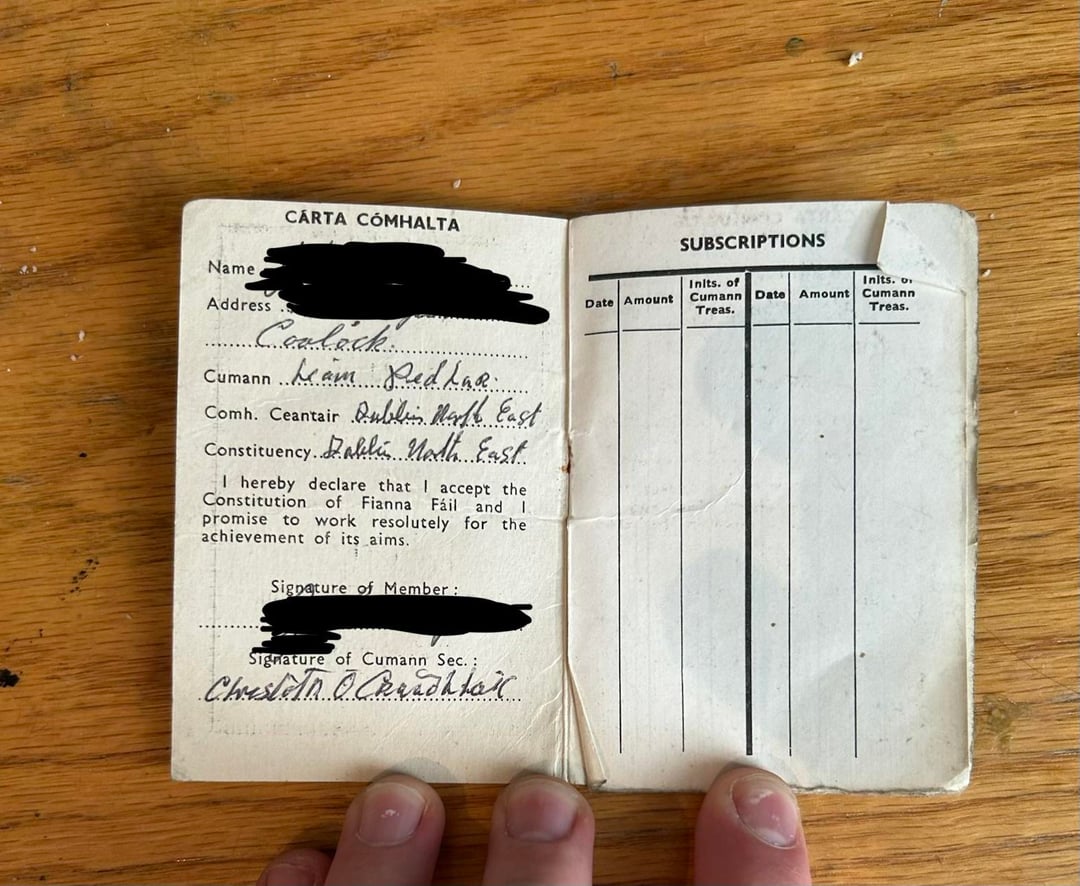 CÁRTA CÓMHALTA
Name
Address
Coolock.
Cumann Liam
Comh. Ceantair Dublin North East
Constituency Dublin North East
I hereby declare that I accept the
Constitution of Fianna Fáil and I
promise to work resolutely for the
achievement of its aims.
Signature of Member:
Signature of Cumann Sec.:
Ó
SUBSCRIPTIONS
Date Amount Inits. of Cumann Treas. Date Amount Inits. of Cumann Treas.